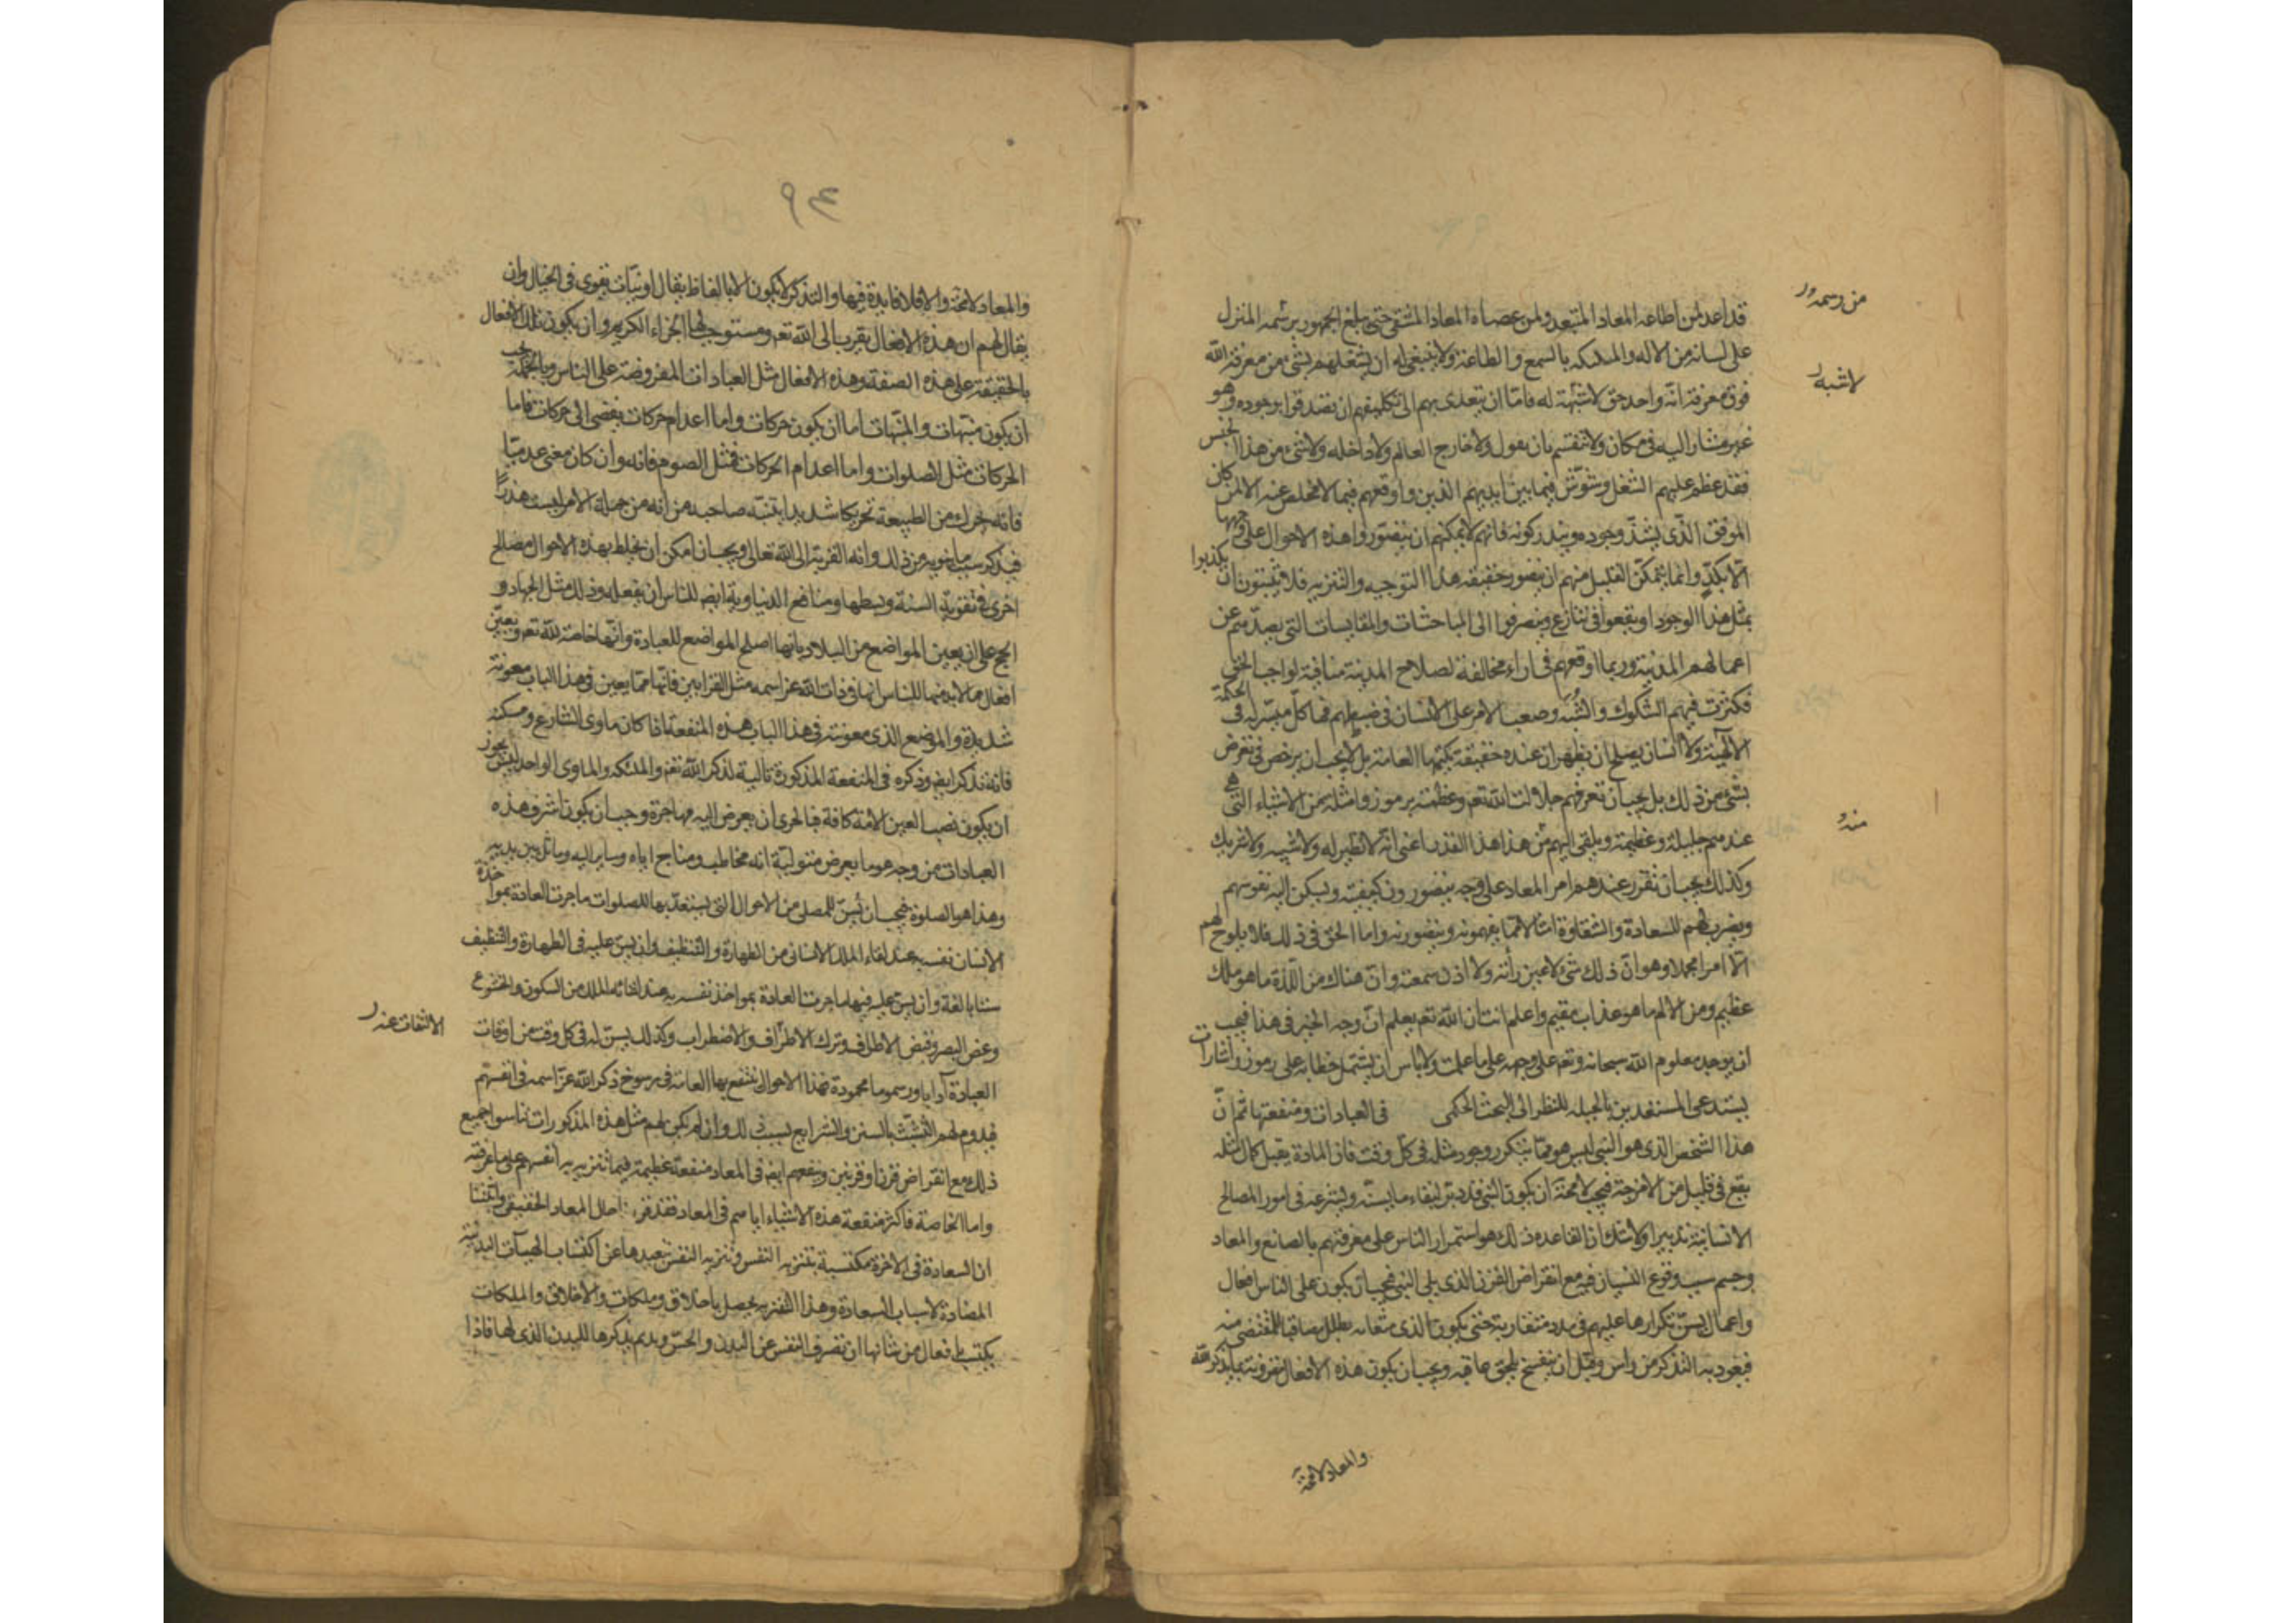 قد اعد لمن اطاعه المعاد المسعد ولمن عصاه المعاد المشقى حتى يبلغ الجمهور برسمه المنزل
من رسمه
على لسانه من الاله والملئكه بالسمع والطاعة ولا ينبغى له ان يشغلهم بشئ من معرفة الله
لا شبه
فوق معرفة انه واحد حق لا شبهة له فاما ان يتعدى بهم الى تكليفهم ان يصدقوا بوجوده وهو
غير مشار اليه فى مكان ولا ينقسم بان يقول ولا خارج العالم ولا داخله ولا شئ من هذا الجنس
فقد عظم عليهم الشغل وشوش فيما بين ايديهم الدين واوقعهم فيما لا مخلص عنه الا لمن كان
الموفق الذى يشذ وجوده ويندر كونه فانهم لا يمكنهم ان يتصوروا هذه الاحوال على وجهها
الا بكد وانما يتمكن القليل منهم ان يتصور حقيقة هذا التوحيد والتنزيه فلا يلبثون ان يكذبوا
بمثل هذا الوجود او يقعوا فى تنازع وينصرفوا الى المباحثات والمقايسات التى يصدهم عن
اعمالهم المدنية وربما اوقعهم فى اراء مخالفة لصلاح المدينة منافية لواجب الحق
فكثرت فيهم الشكوك والشبه وصعب الامر على الانسان فى ضبطهم فما كل ميسر له فى الحكمة
الالهية ولا انسان يصلح ان يظهر ان عنده حقيقة يكتمها العامة بل لا يجب ان يرخص فى تعرض
بشئ من ذلك بل يجب ان تعرفهم جلالت الله تعم وعظمته برموز وامثلة من الاشياء التى هى
عندهم جليلة وعظيمة ويلقى اليهم من هذا هذا القدر اعنى انه لا نظير له ولا شبيه ولا شريك
منه
وكذلك يجب ان تقرر عندهم امر المعاد على وجه يتصورون كيفيته وليسكن اليه نفوسهم
ويضرب لهم للسعادة والشقاوة امثالا مما يفهمونه ويتصورنه واما الحق فى ذلك فلا يلوح لهم
الا امرا مجملا وهو ان ذلك شئ لا عين رأته ولا اذن سمعته وان هناك من اللذة ما هو ملك
عظيم ومن الالم ما هو عذاب مقيم واعلم انت ان الله تعم يعلم ان وجه الخير فى هذا فيجب
ان يوجد معلوم الله سبحانه وتعم على وجهه على ما علمت ولا باس ان يشتمل خطابه على رموز واشارات
يستدعى المستعدين بالجبله للنظر الى البحث الحكمى فى العبادات ومنفعتها ثم ان
هذا الشخص الذى هو النبى ليس هو مما يتكرر وجود مثله فى كل وقت فان المادة يقبل كمال مثله
يقع فى قليل من الامزجة فيجب لا محة ان يكون النبى قد دبر لبقاء ما يسنه ويشرعه فى امور المصالح
الانسانية تدبيرا ولا شك ان القاعدة ذلك هو استمرار الناس على معرفتهم بالصانع والمعاد
وحسم سبب وقوع النسيان فيه مع انقراض القرن الذى يلى النبى فيجب ان يكون على الناس افعال
واعمال يسن تكرارها عليهم فى مدد متقاربة حتى يكون الذى ميقاته بطل مصاقبا للمنقضى منه
فيعود به التذكر من راس وقبل ان ينفسخ يلحق عاقبه ويجب ان يكون هذه الافعال مقرونة بما يذكر الله
والمعاد لا محة
٩٤
والمعاد لا محة والا فلا فايدة فيها والتذكر لا يكون الا بالفاظ يقال او نيات تنوى فى الخيال وان
يقال لهم ان هذه الافعال يقرب الى الله تعم ومستوجب لها الجزاء الكريم وان يكون تلك الافعال
بالحقيقة على هذه الصفة وهذه الافعال مثل العبادات المفروضة على الناس وبالجملة يجب
ان يكون منبهات والمنبهات اما ان يكون حركات واما اعدام حركات يفضى الى حركات فاما
الحركات مثل الصلوات واما اعدام الحركات فمثل الصوم فانه وان كان معنى عدميا
فانه يحرك من الطبيعة تحريكا شديدا ينبه صاحبه من انه من جملة الامر ليست هذرا
فيذكر سبب ما ينويه من ذلك وانه القربة الى الله تعالى ويجب ان امكن ان يخلط بهذه الاحوال مصالح
اخرى فى تقوية السنة وبسطها ومنافع الدنياوية ايضا للناس ان يفعله وذلك مثل الجهاد و
الحج على ان يعين المواضع من البلاد بانها اصلح المواضع للعبادة وانها خاصة لله تعم ويعين
افعال مما لا بد منها للناس انها فى ذات الله عز اسمه مثل القرابين فانها مما يعين فى هذا الباب معونة
شديدة والموضع الذى معونته فى هذا الباب هذه المنفعة اذا كان ماوى الشارع ومسكنه
فانه تذكر ايضا وذكره فى المنفعة المذكورة تالية لذكر الله تعم والملئكه والماوى الواحد ليس يجوز
ان يكون نصب العين الامة كافة فبالحرى ان يعرض اليه مهاجرة ويجب ان يكون اشرف هذه
العبادات من وجه هو ما يعرض متوليه انه مخاطب ومناجى اياه وساير اليه وماثل بين يديه
وهذا هو الصلوة فيجب ان يسن للمصلى من الاحوال التى يستعد بها للصلوات ما جرت العادة بمواخذة
الانسان نفسه عند لقاء الملك الانسانى من الطهارة والتنظيف وان يسن عليه فى الطهارة والتنظيف
سننا بالغة وان يسن عليه فيها ما جرت العادة بمواخذ نفسه به عند لقائه الملك من السكون والخشوع
وغض البصر وقبض الاطراف وترك الاطراف والاضطراب وكذلك يسن له فى كل وقت من اوقات
الالتفات عنه
العبادة آدابا ورسوما محمودة فهذا الاحوال ينتفع بها العامة فى رسوخ ذكر الله عز اسمه فى انفسهم
فيدوم لهم التشبث بالسنن والشرايع بسبب ذلك وان لم يكن لهم مثل هذه المذكورات تناسوا جميع
ذلك مع انقراض قرن او قرنين وينفعهم ايضا فى المعاد منفعة عظيمة فيما تنزه به انفسهم على ما عرفته
واما الخاصة فاكثر منفعة هذه الاشياء اياهم فى المعاد فقد قرر حال المعاد الحقيقى واثبتنا
ان السعادة فى الاخرة مكتسبة بتنزيه النفس وتنزيه النفس تبعيدها عن اكتساب الهيآت البدنية
المضادة لاسباب السعادة وهذا التنزيه يحصل باخلاق وملكات والاخلاق والملكات
يكتسب بافعال من شانها ان تصرف النفس عن البدن والحس ويديم تذكرها للبدن الذى لها فاذا